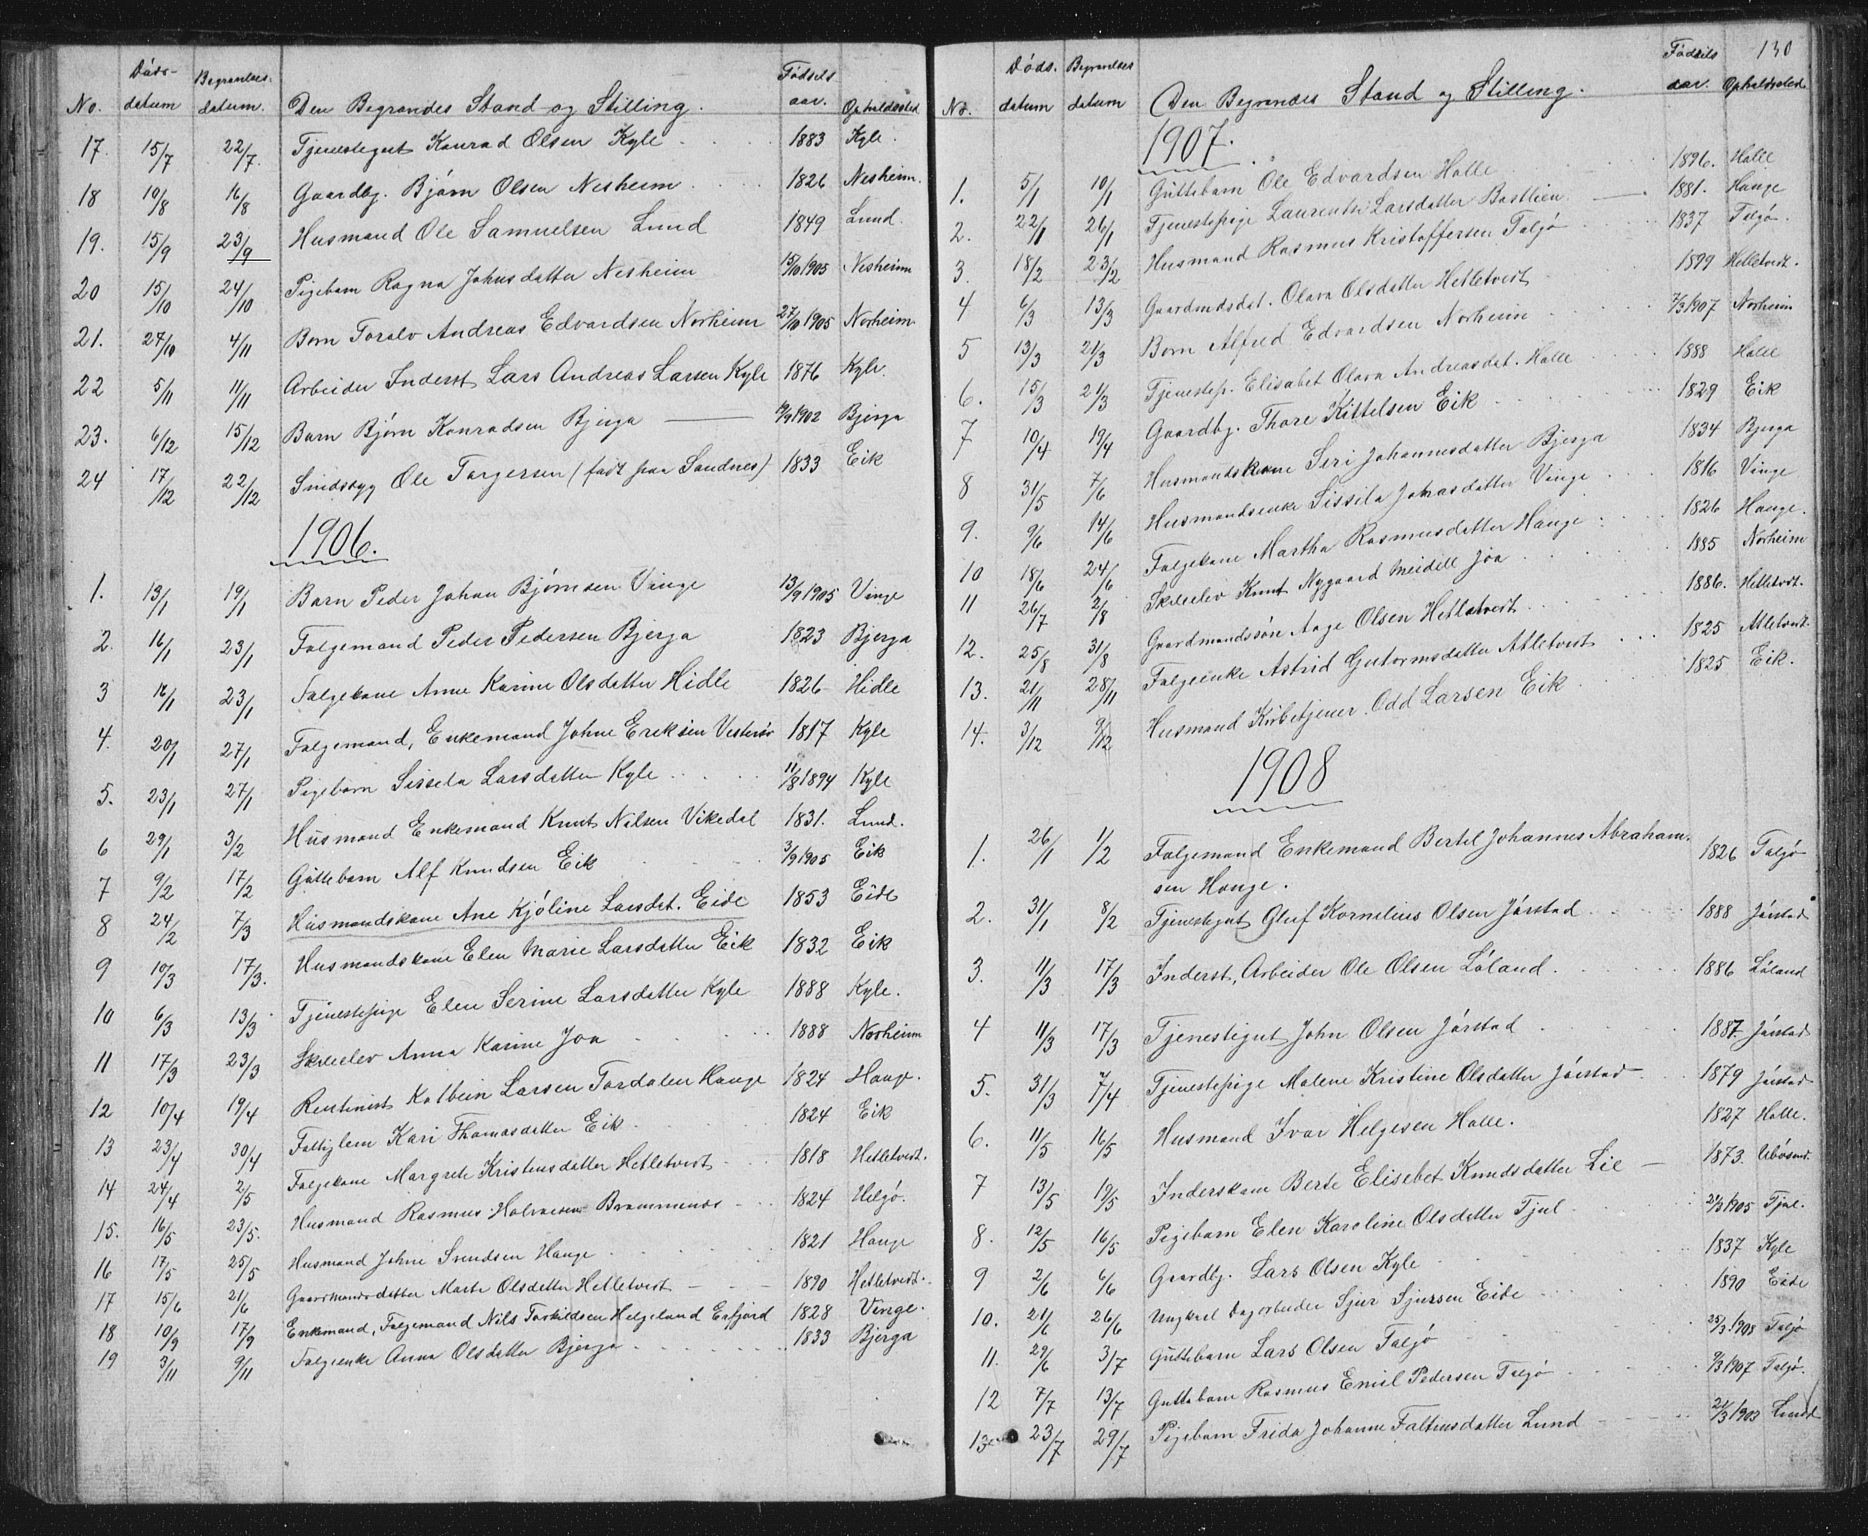 No. Døds-datum Begravelses-datum. Den Begravedes Stand og Stilling. Fødsels aar. Opholdssted
17. 15/7 22/7. Tjenestegut Konrad Olsen Kyle 1883 Kyle.
18 10/8 16/8 Gaardbg. Bjørn Olsen Nesheim. 1826 Nesheim.
19. 15/9 23/9 Husmand Ole Samuelsen Lund 1849 Lund.
20 15/10 24/10 Pigebarn Ragna Johnsdatter Nesheim 15/10 1905 Nesheim
21. 27/10 4/11 Barn Toralv Andreas Edvardsen Norheim 27/10 1905 Norheim
22 5/11 11/11 Arbeider Inderst Lars Andreas Larsen Kyle 1876 Kyle.
23. 6/12 15/12 Barn Bjørn Konradsen Bjerga 1902 Bjerga
24 17/12 22/12 Sindssyg Ole Torgersen (født paa Sandnes) 1833 Eik
1906.
1. 13/1 19/1 Barn Peder Johan Bjørnsen Vinge 13/9 1905 Vinge
2. 16/1 23/1 Folgemand Peder Pedersen Bjerga 1823 Bjerga
3 16/1 23/1 Folgekone Anne Karine Olsdatter Hidle 1826 Hidle
4. 20/1 27/1 Folgemand, Enkemand Johne Eriksen 1817 Kyle
5. 23/1 27/1 Pigebarn Sissela Larsdatter Kyle 11/8 1894 Kyle
6 29/1 3/2 Husmand Enkemand Knut Nilsen Vikedal 1831. Lund.
7 9/2 17/2 Guttebarn Alf Knudsen Eik 3/9 1905 Eik
8 24/2 7/3 Husmandskone Ane Kjøline Larsdat. Eide 1853 Eide
9 10/3 17/3. Husmandskone Elen Marie Larsdatter Eik 1832 Eik
10 6/3 13/3 Tjenestepige Elen Serine Larsdatter Kyle 1888 Kyle.
11 17/3 23/3 Skoleelev Anna Karine Joa 1888 Norheim
12 10/4 19/4 Rentenist Kolbein Larsen Tordalen Hauge 1824 Hauge.
13 23/4 30/4 Fattiglem Kari Thomasdatter Eik. 1824 Eik
14 24/4 2/5 Folgekone Margrete Kristensdatter Hetletvedt 1818 Hetletvedt.
15. 16/5 23/5. Husmand Rasmus Halvorsen Brommenæs 1824 Helgø.
16 17/5 25/5 Husmand Johne Knudsen Hauge 1821 Hauge
17 15/6 21/6 Gaardmandsdatter Marte Olsdatter Hetletvedt 1890 Hetletvedt.
18 10/9 17/9 Enkemand, Folgemand Nils Torkildsen Helgeland Erfjord 1828 Vinge.
19 3/11 9/11 Folgeenke Anna Olsdatter Bjerga 1833 Bjerga
130
No. Døds-datum Begravelses datum Den Begravedes Stand og Stilling. Fødsels aar. Opholdssted.
1907.
1. 5/1 10/1 Guttebarn Ole Edvardsen Halle 1896. Halle
2. 22/1 26/1 Tjenestepige Laurentse Larsdatter Bastlien 1881. Hauge
3 18/2 23/2 Husmand Rasmus Kristoffersen Talgø 1837 Talgø.
4 6/3 13/3 Gaardmdsdat. Olava Olsdatter Hetletvedt 1899 Hetletvedt.
5 13/3 21/3 Barn Alfred Edvardsen Norheim 7/3 1907 Norheim
6. 15/3 21/3 Tjenestep. Elisabet Olava Andreasdat. Halle 1888 Halle
7 10/4 19/4 Gaardbg. Thore Kittelsen Eik 1829 Eik
8 31/5 7/6 Husmandskone Seri Johannesdatter Bjerga 1834 Bjerga
9. 9/6 14/6 Husmandsenke Sissela Johnsdatter Vinge 1816 Vinge
10 18/6 24/6 Folgekone Martha Rasmusdatter Hauge 1826 Hauge.
11 26/7 2/8 Skoleelev Knut Nygaard Meidell Joa 1885 Norheim
12. 25/8 31/8 Gaardmandssøn Aage Olsen Hetletvedt 1886. Hetletvedt.
13. 21/11 28/11 Folgeenke Astrid Gutormsdatter Atletvedt 1825 Atletvedt.
14. 3/12 9/12 Husmand Kirketjener Odd Larsen Eik 1825 Eik.
1908
1. 26/1 1/2 Folgemand Enkemand Bertel Johannes Abraham-
sen Hauge. 1826 Talgø
2. 31/1 8/2 Tjenestegut Oluf Kornelius Olsen Jørstad 1888 Jørstad
3. 11/3 17/3 Inderst, Arbeider Ole Olsen Løland. 1886 Løland
4 11/3 17/3 Tjenestegut John Olsen Jørstad 1887 Jørstad
5. 31/3 7/4 Tjenestepige Malene Kristine Olsdatter Jørstad 1879 Jørstad
6. 11/5 16/5 Husmand Ivar Helgesen Halle. 1827 Halle.
7 13/5 19/5 Inderskone Berte Elisebet Knudsdatter Lie 1873.
8. 12/5 16/5 Pigebarn Elen Karoline Olsdatter Tjul 21/3 1905 Tjul.
9 2/6 6/6 Gaardbg. Lars Olsen Kyle 1837 Kyle
10. 21/6 26/6 Ungkarl Dagarbeider Sjur Sjursen Eide 1890 Eide
11. 29/6 3/7 Guttebarn Lars Olsen Talgø 25/3 1908 Talgø
12 7/7 13/7 Guttebarn Rasmus Emil Pedersen Talgø 9/3 1907 Talgø.
13 23/7 29/7 Pigebarn Frida Johanne Faltinsdatter Lund 21/3 1903 Lund